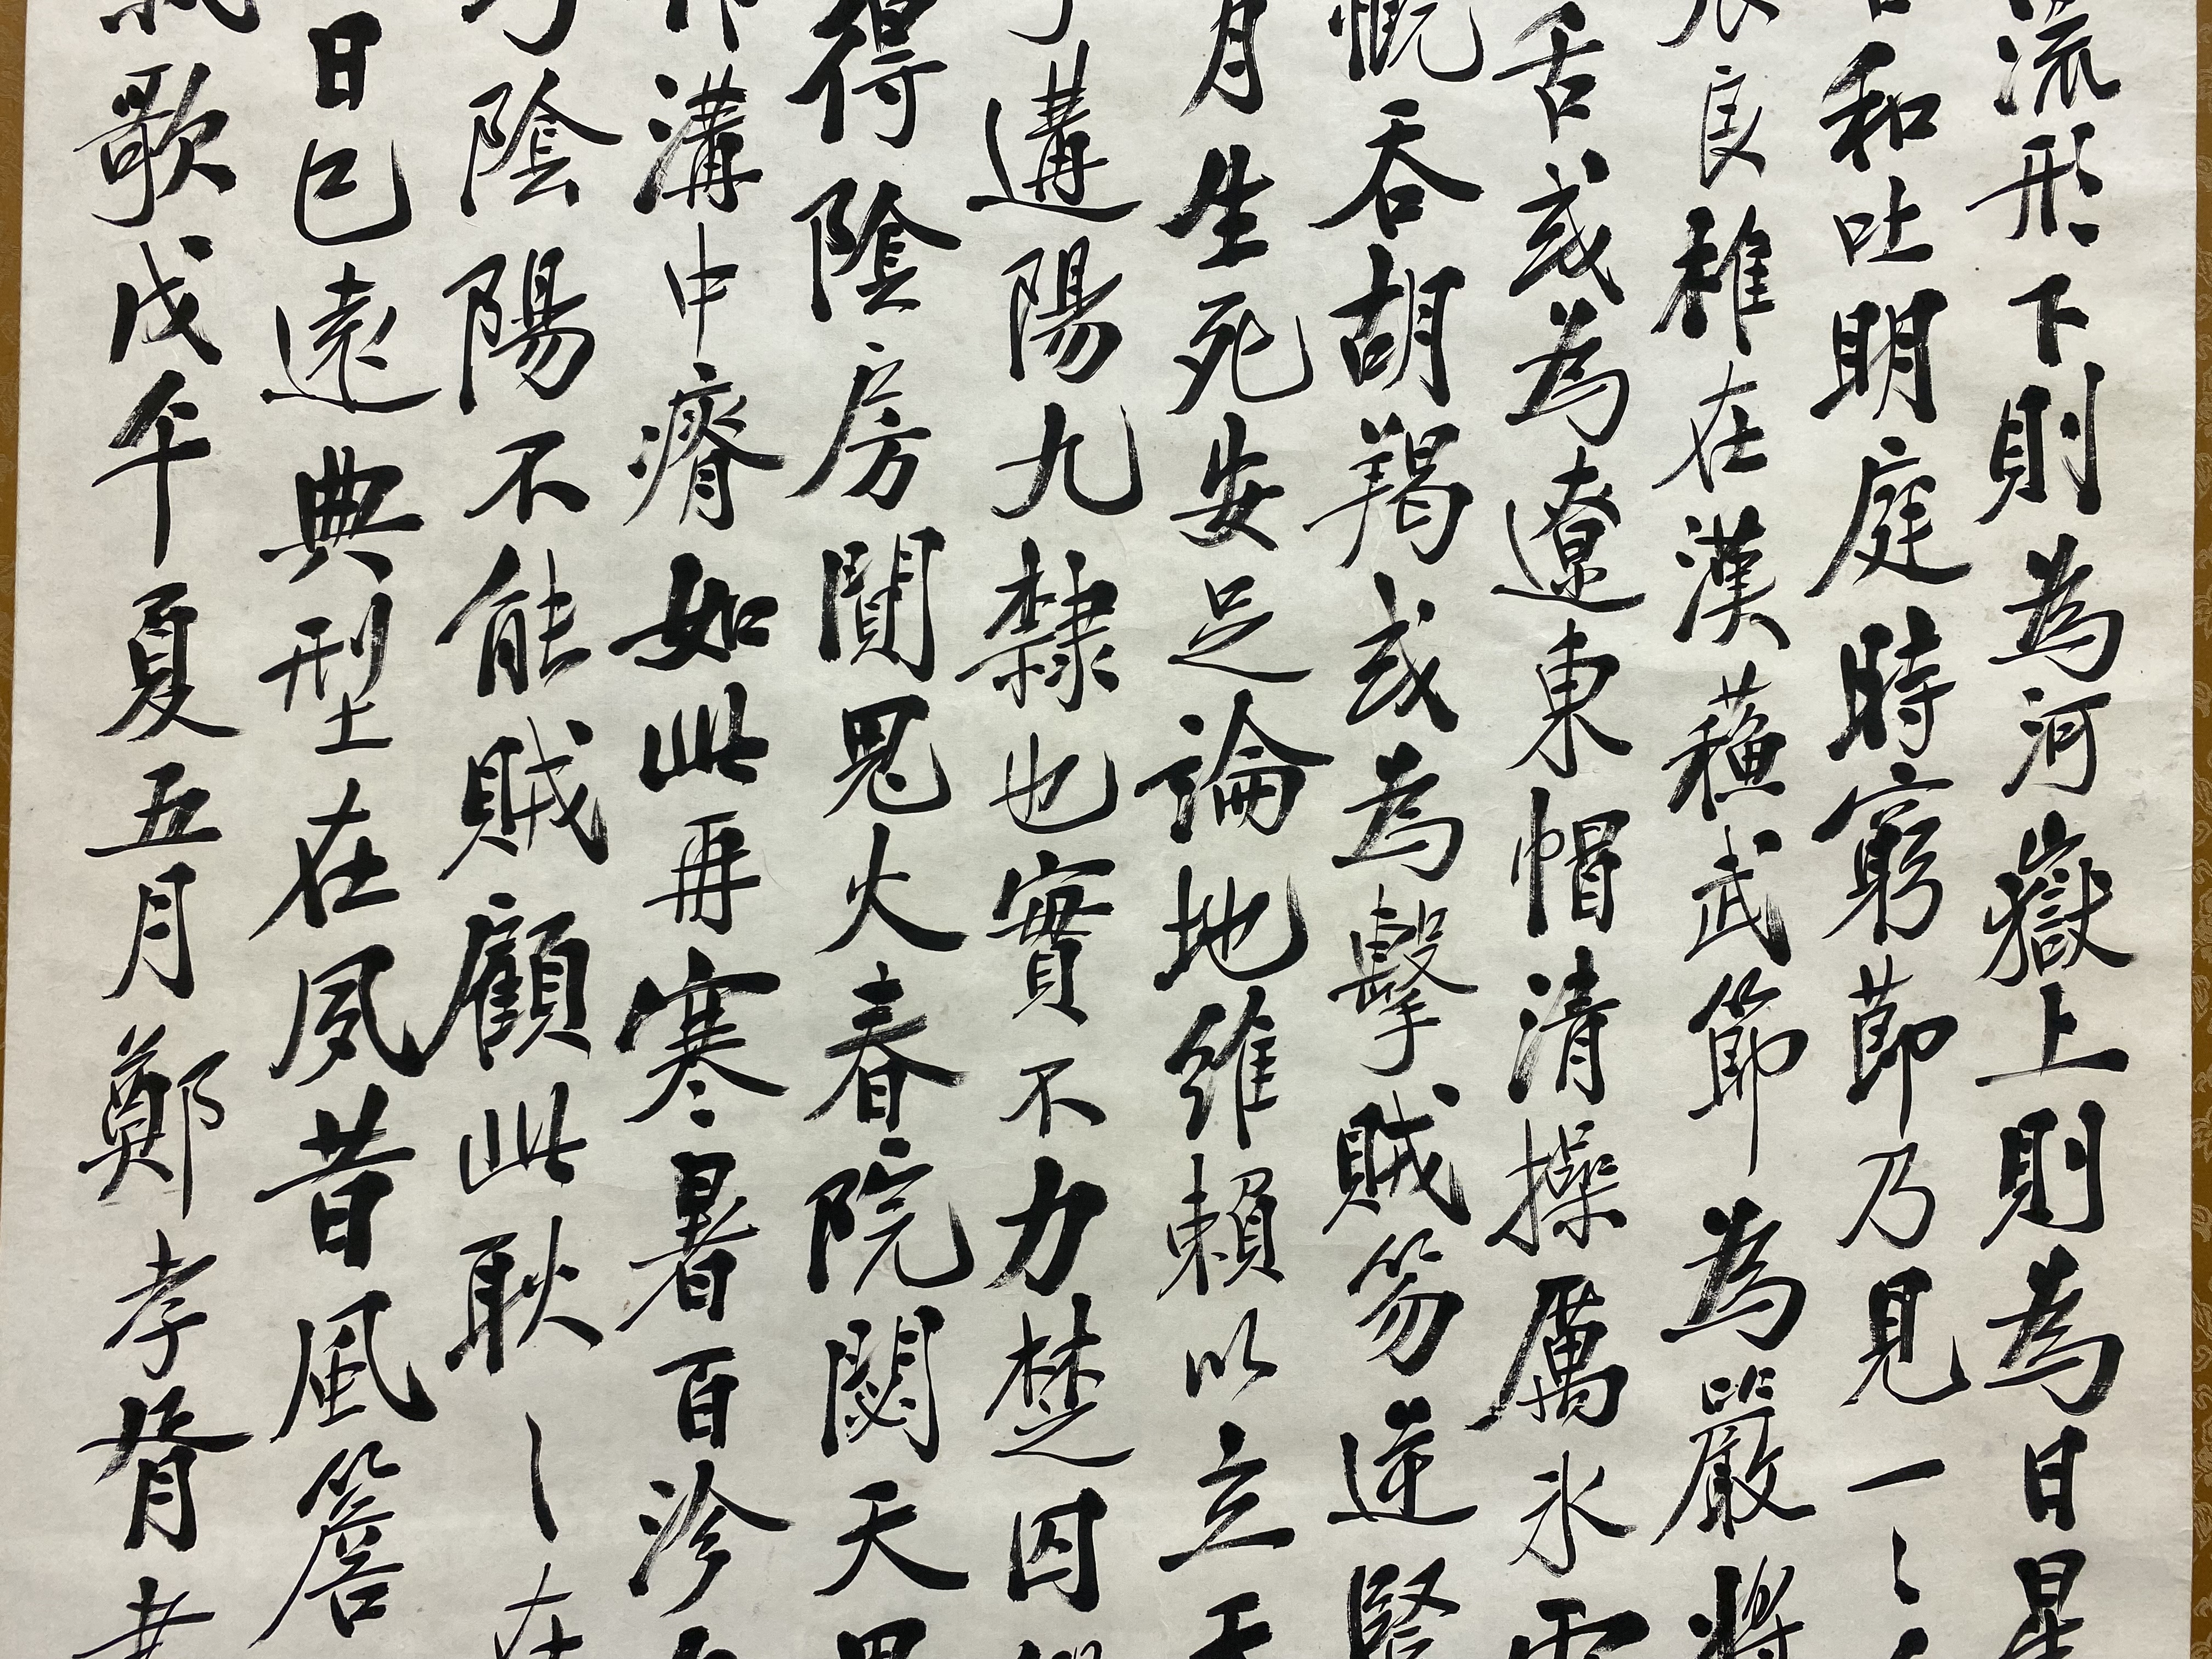 流形下則為河嶽上則為日星
和吐明庭時窮節乃見一〻
良椎在漢蘓武節為嚴將
舌或為遼東帽清操厲氷雪
慨吞胡羯或為擊賊笏逆豎
月生死安足論地維賴以立天
遘陽九隸也實不力楚囚
得陰房闃鬼火春院閟天黑
溝中瘠如此再寒暑百沴
陰陽不能賊顧此耿〻在
日已遠典型在夙昔風簷
歌戊午夏五月鄭孝胥書